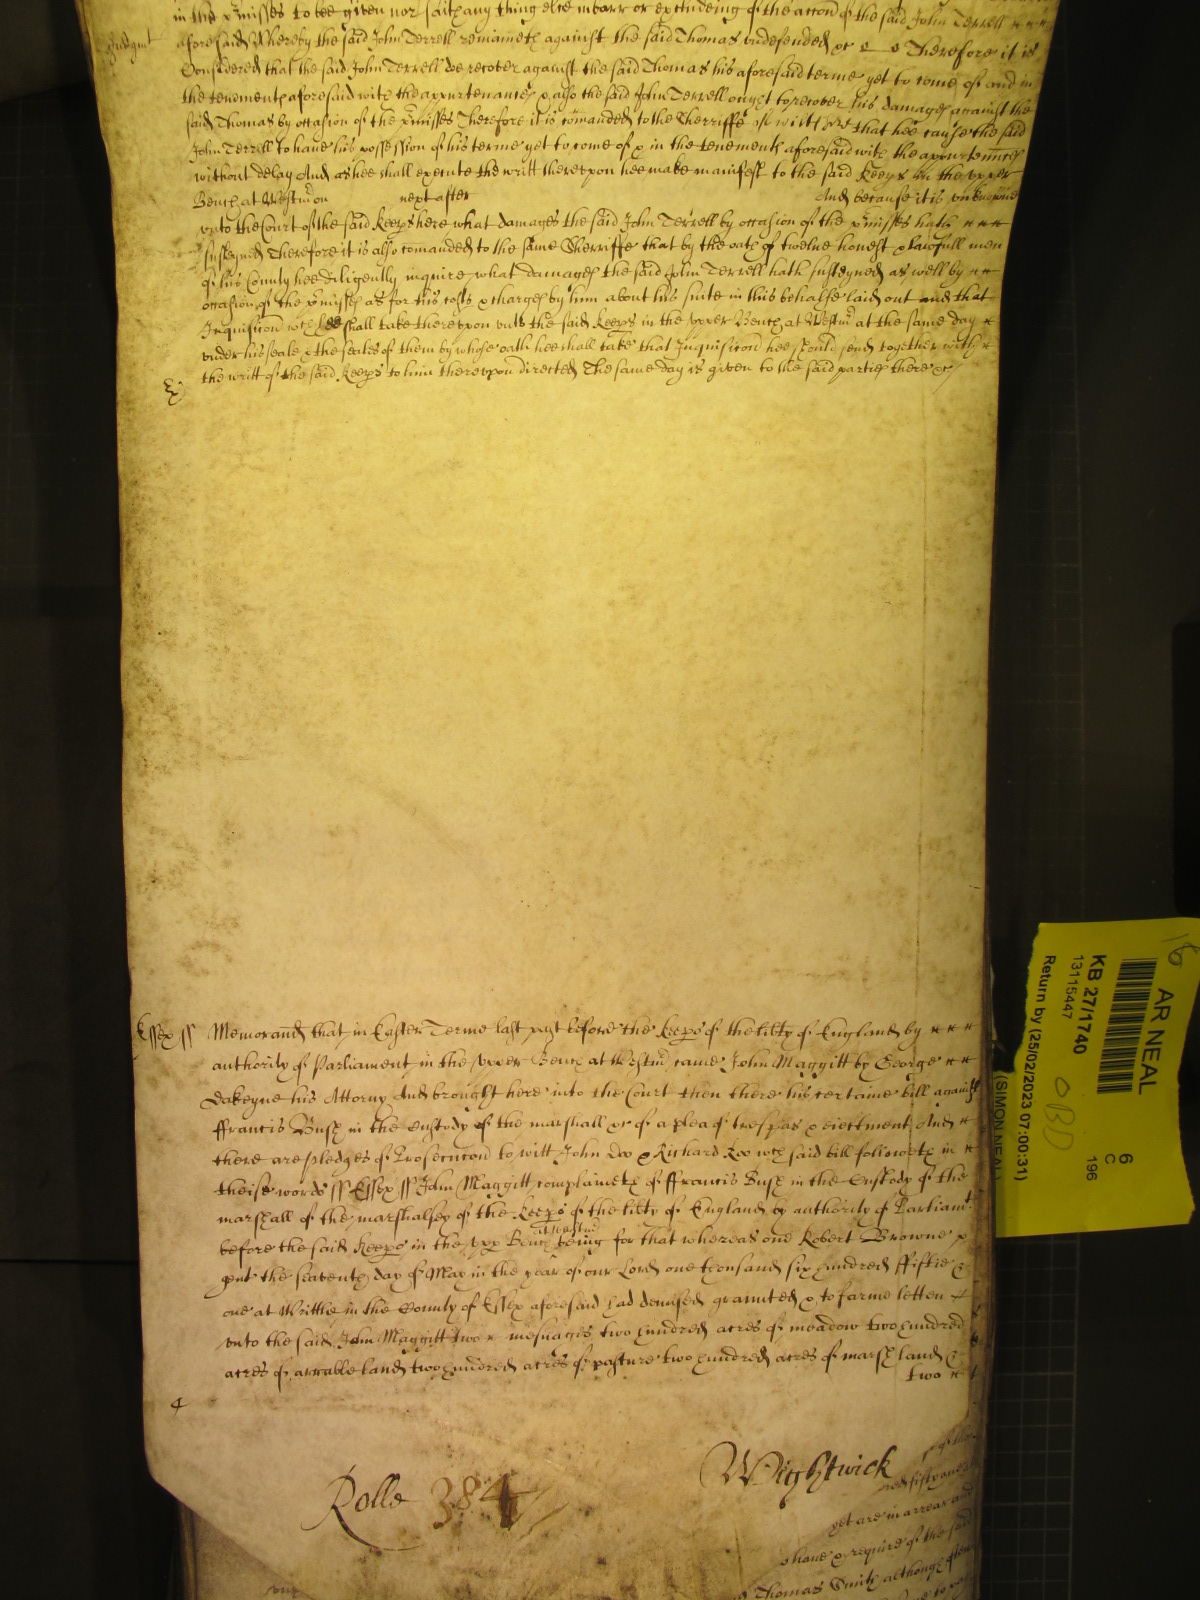 in the p'misses to bee given nor saith any thing else in barr or excludeing of the accon of the said John Terrell
Judgmt aforesaid Whereby the said John Terrell remaineth against the said Thomas undefended &c Therefore it is
Considered that the said John Terrell doe recover against the said Thomas his aforesaid terme yet to come of and in
the tenements aforesaid with the appurtenances & also the said John Terrell ought to recover his damages against the
said Thomas by occasion of the p'misses Therefore it is comanded to the Sherriffe that hee cause the said
John Terrell to have his possession of his terme yet to come of & in the tenements aforesaid with the appurtenncs
without delay And as hee shall execute the writt thereupon hee make manifest to the said Keeps in the upper
Bench at Westm on next after And because it is unknowne
unto the Court of the said Keeps here what damages the said John Terrell by occasion of the p'misses hath
susteyned Therefore it is also comanded to the same Sherriffe that by the oath of twelve honest & lawfull men
of his County hee diligently inquire what damages the said John Terrell hath susteyned as well by
occasion of the p'misses as for his costs & charges by him about his suite in this behalfe laid out and that
Inquisicon wch hee shall take thereupon unto the said Keeps in the upper Bench at Westm at the same day
under his seale & the seales of them by whose oath hee shall take that Inquisicon hee should send together with
the writt of the said Keeps to him thereupon directed The same day is given to the said parties there &c
Essex ss Memorand that in Easter Terme last past before the Keeps of the libty of England by
authority of Parliament in the upper Bench at Westm came John Maggitt by George
Dakeyne his Attorny And brought here into the Court then there his certaine bill against
ffrancis Bush in the custody of the marshall &c of a plea of trespas & eiectment And
there are pledges of Prosecucon to witt John Doo & Richard Roo wch said bill followeth in
theise words ss Essex ss John Maggitt complaineth of ffrancis Bush in the Custody of the
marshall of the marshalsey of the Keeps of the libty of England by authority of Parliamt
before the said Keeps in the upp Bench at Westm being for that whereas one Robert Browne
gent the seaventh day of May in the year of our Lord one thousand six hundred ffiftie &
one at Writtle in the County of Essex aforesaid had demised graunted & to farme letten
unto the said John Maggitt two mesuages two hundred acres of meadow two hundred
acres of arrable land two hundred acres of pasture two hundred acres of marsh land &
two
Rolle 384
Wightwick
yet are in arrear and
have & require of the said
Thomas Smith although often
AR NEAL
KB 27/1740
13115447
Return by (25/02/2023 07:00:31)
(SIMON NEAL)
6
C
196
18
OBD